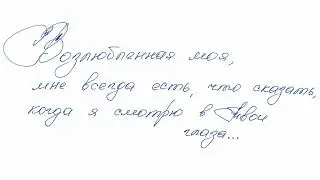 Возлюбленная моя,
мне всегда есть, что сказать,
когда я смотрю в Твои
глаза...